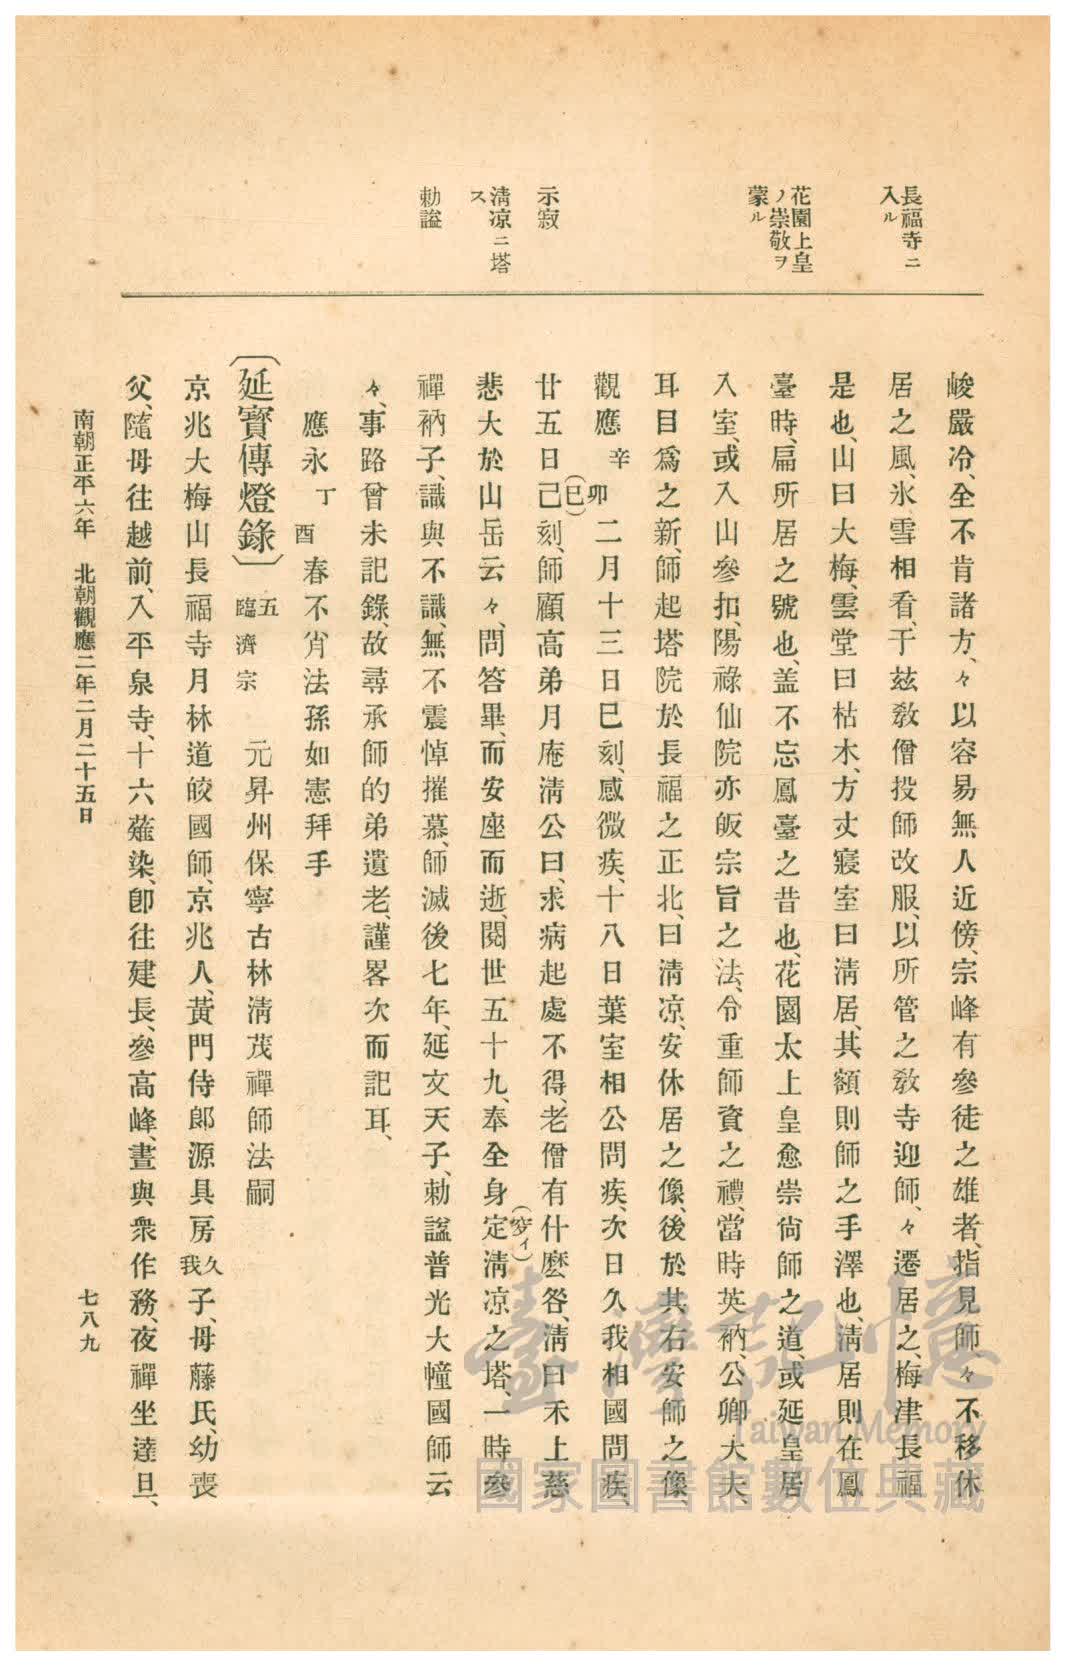 長福寺ニ
入ル
花園上皇
ノ崇敬ヲ
蒙ル
示寂
淸凉ニ塔
ス
勅謚
峻嚴冷、全不肯諸方、々以容易無人近傍、宗峰有參徒之雄者、指見師、々不移休
居之風、氷雪相看、于玆敎僧投師改服、以所管之敎寺迎師、々遷居之、梅津長福
是也、山曰大梅、雲堂曰枯木、方丈寢室曰淸居、其額則師之手澤也、淸居則在鳳
臺時、扁所居之號也、盖不忘鳳臺之昔也、花園太上皇愈崇尙師之道、或延皇居
入室、或入山參扣、陽祿仙院亦皈宗旨之法、令重師資之禮、當時英衲、公卿大夫、
耳目爲之新、師起塔院於長福之正北、曰淸凉、安休居之像、後於其右安師之像、
觀應辛卯二月十三日巳刻、感微疾、十八日葉室相公問疾、次日久我相國問疾、
廿五日己(巳)刻、師顧高弟月庵淸公曰、求病起處不得、老僧有什麽咎、淸曰禾上慈
悲大於山岳云々、問答畢、而安座而逝、閱世五十九、奉全身定(窆イ)淸凉之塔、一時參
禪衲子、識與不識、無不震悼摧慕、師滅後七年、延文天子、勅謚普光大幢國師云
々、事路曾未記錄、故尋承師的弟遺老、謹畧次而記耳、
應永丁酉春不肖法孫如憲拜手
〔延寶傳燈錄〕五 臨濟宗 元昇州保寧古林淸茂禪師法嗣
京兆大梅山長福寺月林道皎國師、京兆人、黃門侍郞源具房久我子、母藤氏、幼喪
父、隨母往越前、入平泉寺、十六薙染、卽往建長、參高峰、晝與衆作務、夜禪坐達旦、
南朝正平六年 北朝觀應二年二月二十五日
七八九
臺灣記憶
Taiwan Memory
國家圖書館數位典藏